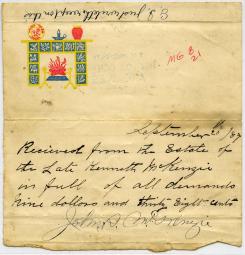 MG 8
21
September
Recieved from the Estate of
the Late Kenneth McKenzie
in full of all demands
Nine dollars and thirty Eight cents
John McKenzie